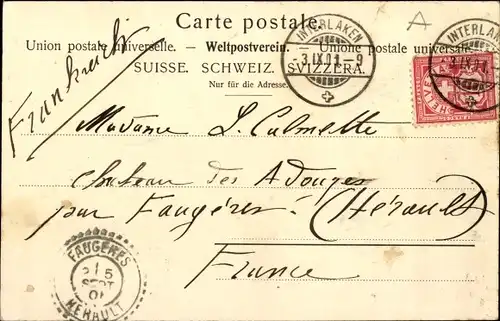 Carte postale.
A
Union postale universelle. - Weltpostverein. - Unione postale universale.
SUISSE. SCHWEIZ. SVIZZERA.
Nur für die Adresse.
INTERLAKEN
3.IX.01.-9
INTERLAKEN
HELVETIA
Frankreich
Madame L. Calmette
chateau des Adouzes
par Faugères. (Hérault)
France
FAUGERES
5
SEPT
01
HERAULT